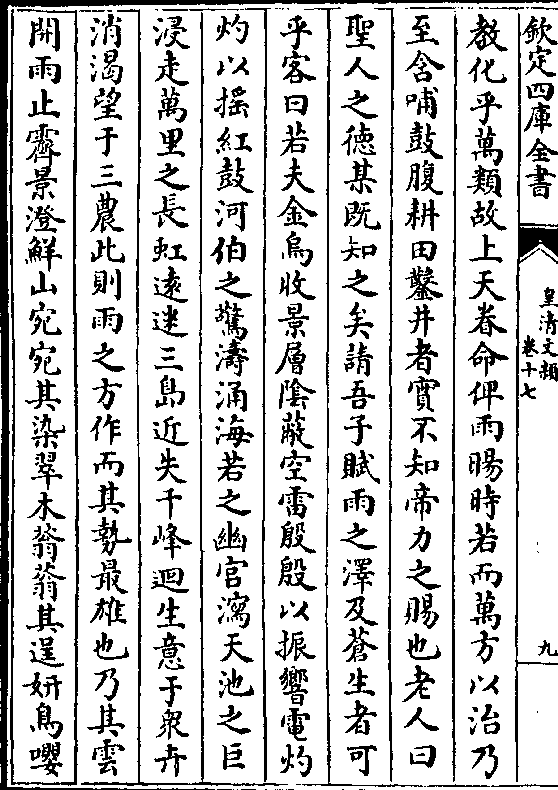 欽定四庫全書
皇清文穎
卷十七
九
教化乎萬類故上天眷命俾雨暘時若而萬方以治乃
至含哺鼓腹耕田鑿井者實不知帝力之賜也老人曰
聖人之德某既知之矣請吾子賦雨之澤及蒼生者可
乎客曰若夫金烏收景層陰蔽空雷殷殷以振響電灼
灼以搖紅鼓河伯之驚濤涌海若之幽宫瀉天池之巨
浸走萬里之長虹遠迷三島近失千峰迴生意于衆卉
消渴望于三農此則雨之方作而其勢最雄也乃其雲
開雨止霽景澄鮮山宛宛其染翠木蓊蓊其逞妍鳥嚶